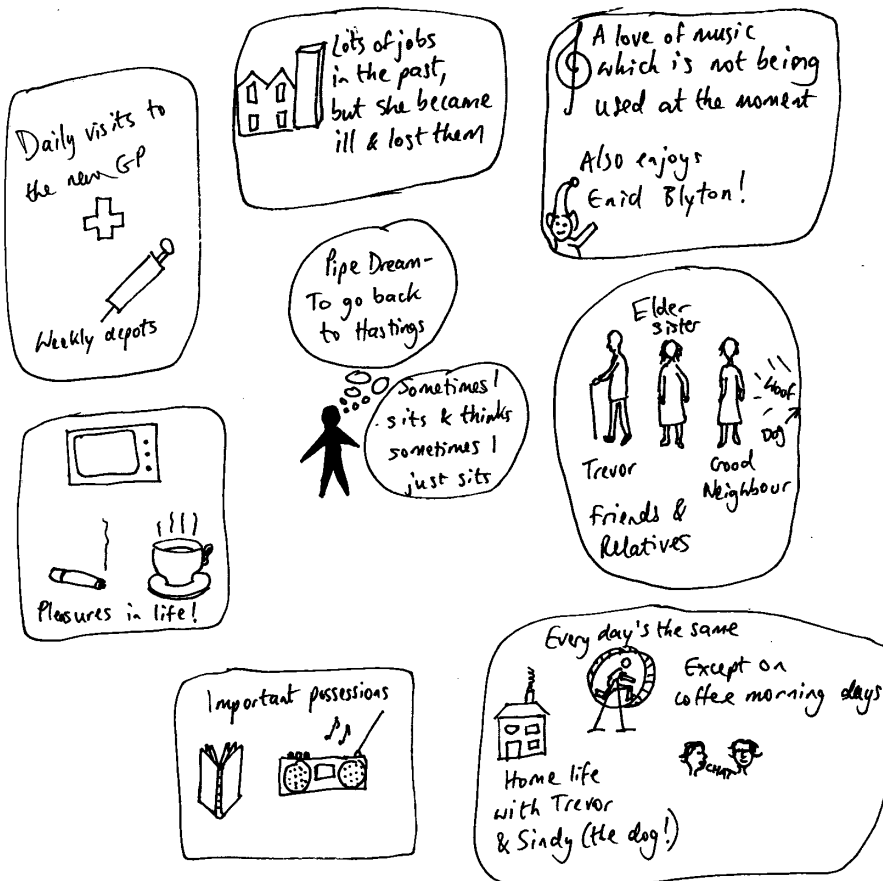 Daily visits to
the new GP
Weekly depots
Lots of jobs
in the past,
but she became
ill & lost them
A love of music
which is not being
used at the moment
Also enjoys
Enid Blyton!
Pipe Dream-
To go back
to Hastings
Sometimes I
sits & thinks
sometimes I
just sits
Elder
sister
Woof
Dog
Trevor
Good
Neighbour
Friends &
Relatives
Pleasures in life!
Important possessions
Every day's the same
Except on
coffee morning days
CHAT
Home life
with Trevor
& Sindy (the dog!)